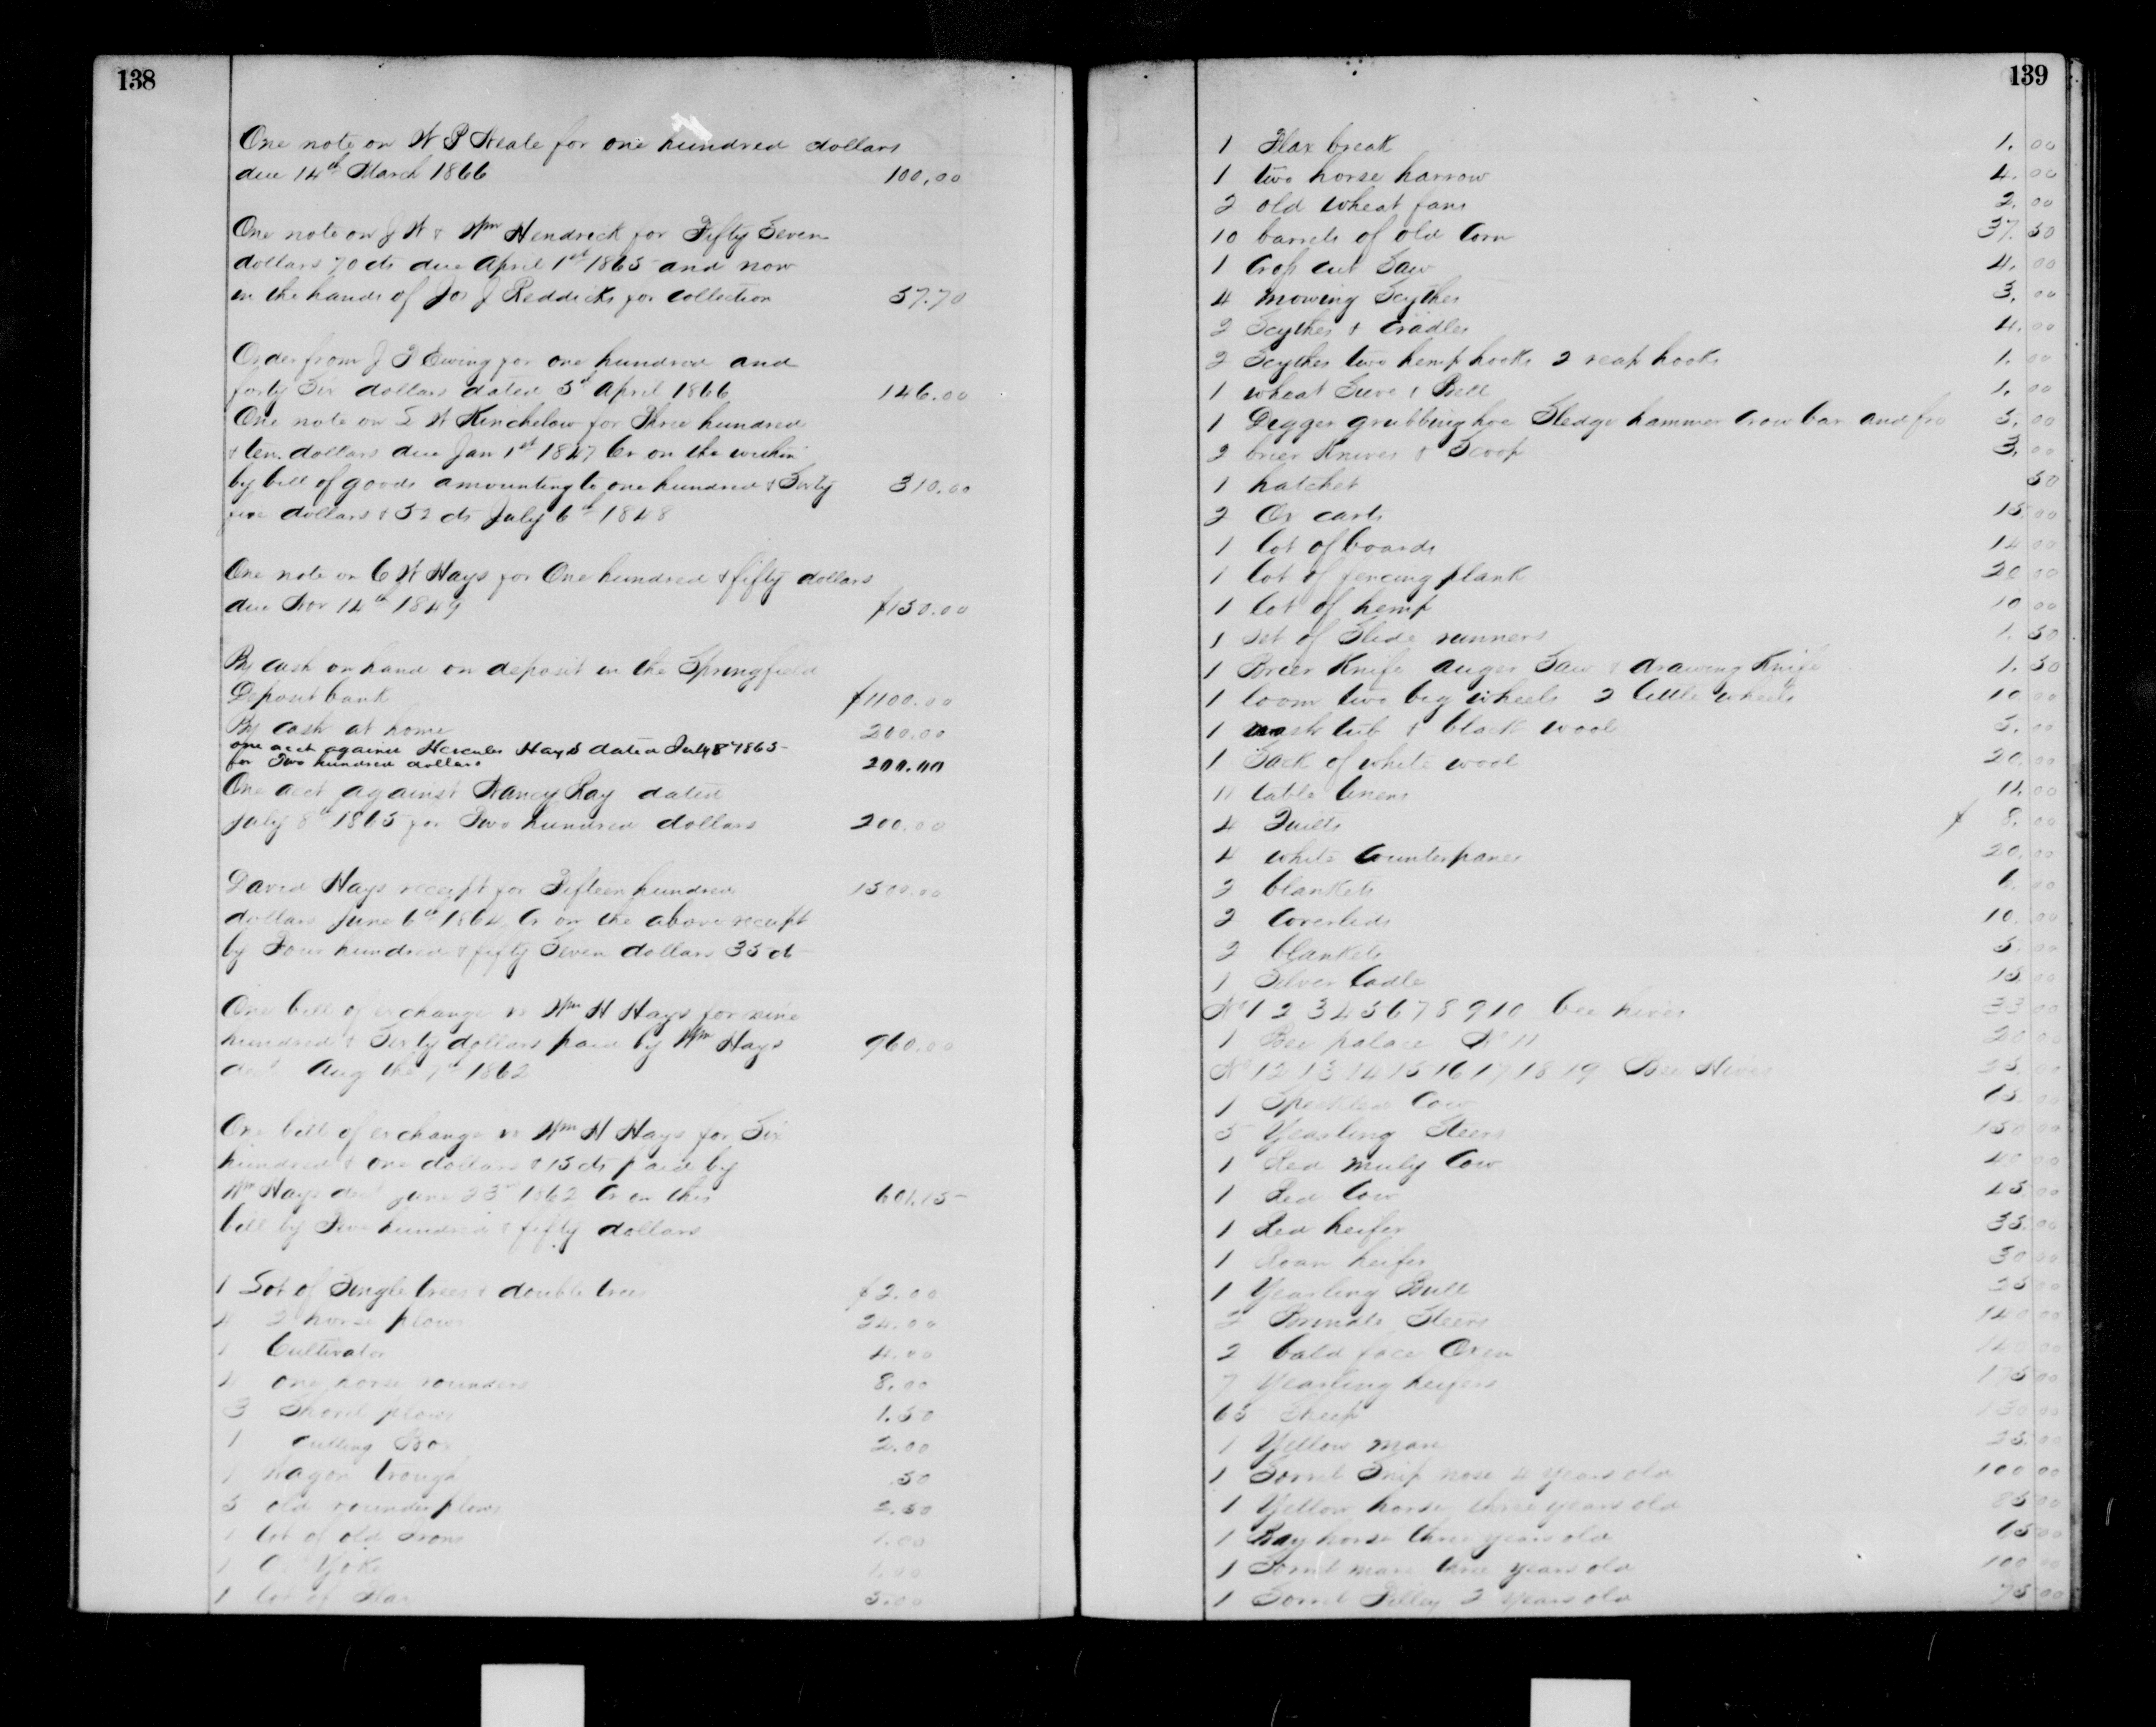 138
One note on W P Neale for one hundred dollars
due 14th March 1866 100.00
One note on J W & Wm Hendrick for Fifty Seven
dollars 70 cts due April 1st 1865 and now
in the hands of Jos J Reddicks for collection 57.70
Order from J T Ewing for one hundred and
forty Six dollars dated 5th April 1866 146.00
One note on S W Kinchelow for Three hundred
& ten dollars due Jan 1st 1847 Cr on the within
by bill of goods amounting to one hundred & Sixty 310.00
five dollars & 52 cts July 6th 1848
One note on C W Hays for One hundred & fifty dollars
due Nov 14th 1849 $150.00
By cash on hand on deposit in the Springfield
Deposit bank $1100.00
By cash at home 200.00
one acct against Hercules Hays dated July 8 1865
for Two hundred dollars 200.00
One acct against Nancy Ray dated
July 8th 1865 for Two hundred dollars 200.00
David Hays receipt for Fifteen hundred 1500.00
dollars June 6th 1864 Cr on the above receipt
by Four hundred & fifty Seven dollars 35 ct
One bill of exchange vs Wm H Hays for nine
hundred & Sixty dollars paid by Wm Hays 960.00
decd Aug the 7th 1862
One bill of exchange vs Wm H Hays for Six
hundred & one dollars & 15 cts paid by
Wm Hays decd June 23rd 1862 Cr on this 601.15
bill by Five hundred & fifty dollars
1 Lot of Single trees & double trees $2.00
4 2 horse plows 24.00
1 Cultivator 4.00
4 one horse rounders 8.00
3 Shovel plows 1.50
1 cutting Box 2.00
1 Wagon trough .50
5 old rounder plows 2.50
1 lot of old Irons 1.00
1 Ox Yoke 1.00
1 lot of Flax 5.00
139
1 Flax break 1.00
1 two horse harrow 4.00
2 old wheat fans 2.00
10 barrels of old Corn 37.50
1 Cross cut Saw 4.00
4 mowing Scythes 3.00
2 Scythes & Cradles 4.00
2 Scythes two hemp hooks 2 reap hooks 1.00
1 wheat Sieve & Bell 1.00
1 Digger grubbing hoe Sledge hammer Crow bar and fro 5.00
2 brier Knives & Scoop 3.00
1 hatchet 50
2 Ox carts 15.00
1 lot of boards 14 00
1 lot of fencing plank 20 00
1 lot of hemp 10 00
1 set of Slide runners 1.50
1 Brier Knife auger Saw & drawing Knife 1.50
1 loom two big wheels 2 little wheels 10 00
1 wash tub & black wool 5.00
1 Sack of white wool 20.00
11 table linens 11.00
4 Quilts $ 8.00
4 white Counterpanes 20.00
2 blankets 6.00
2 Coverlids 10.00
2 blankets 5.00
1 Silver Ladle 15.00
No 1 2 3 4 5 6 7 8 9 10 bee hives 33 00
1 Bee palace No 11 20 00
No 12 13 14 15 16 17 18 19 Bee Hives 25.00
1 Speckled Cow 15.00
5 Yearling Steers 150 00
1 Red muly Cow 40 00
1 Red Cow 45.00
1 Red heifer 35.00
1 Roan heifer 30 00
1 Yearling Bull 25 00
2 Brindle Steers 140 00
2 bald face Oxen 140 00
7 Yearling heifers 175 00
65 Sheep 130 00
1 Yellow mare 25.00
1 Sorrel Snip nose 4 years old 100 00
1 Yellow horse three years old 85 00
1 Bay horse three years old 65 00
1 Sorrel mare three years old 100 00
1 Sorrel Filley 2 years old 75 00